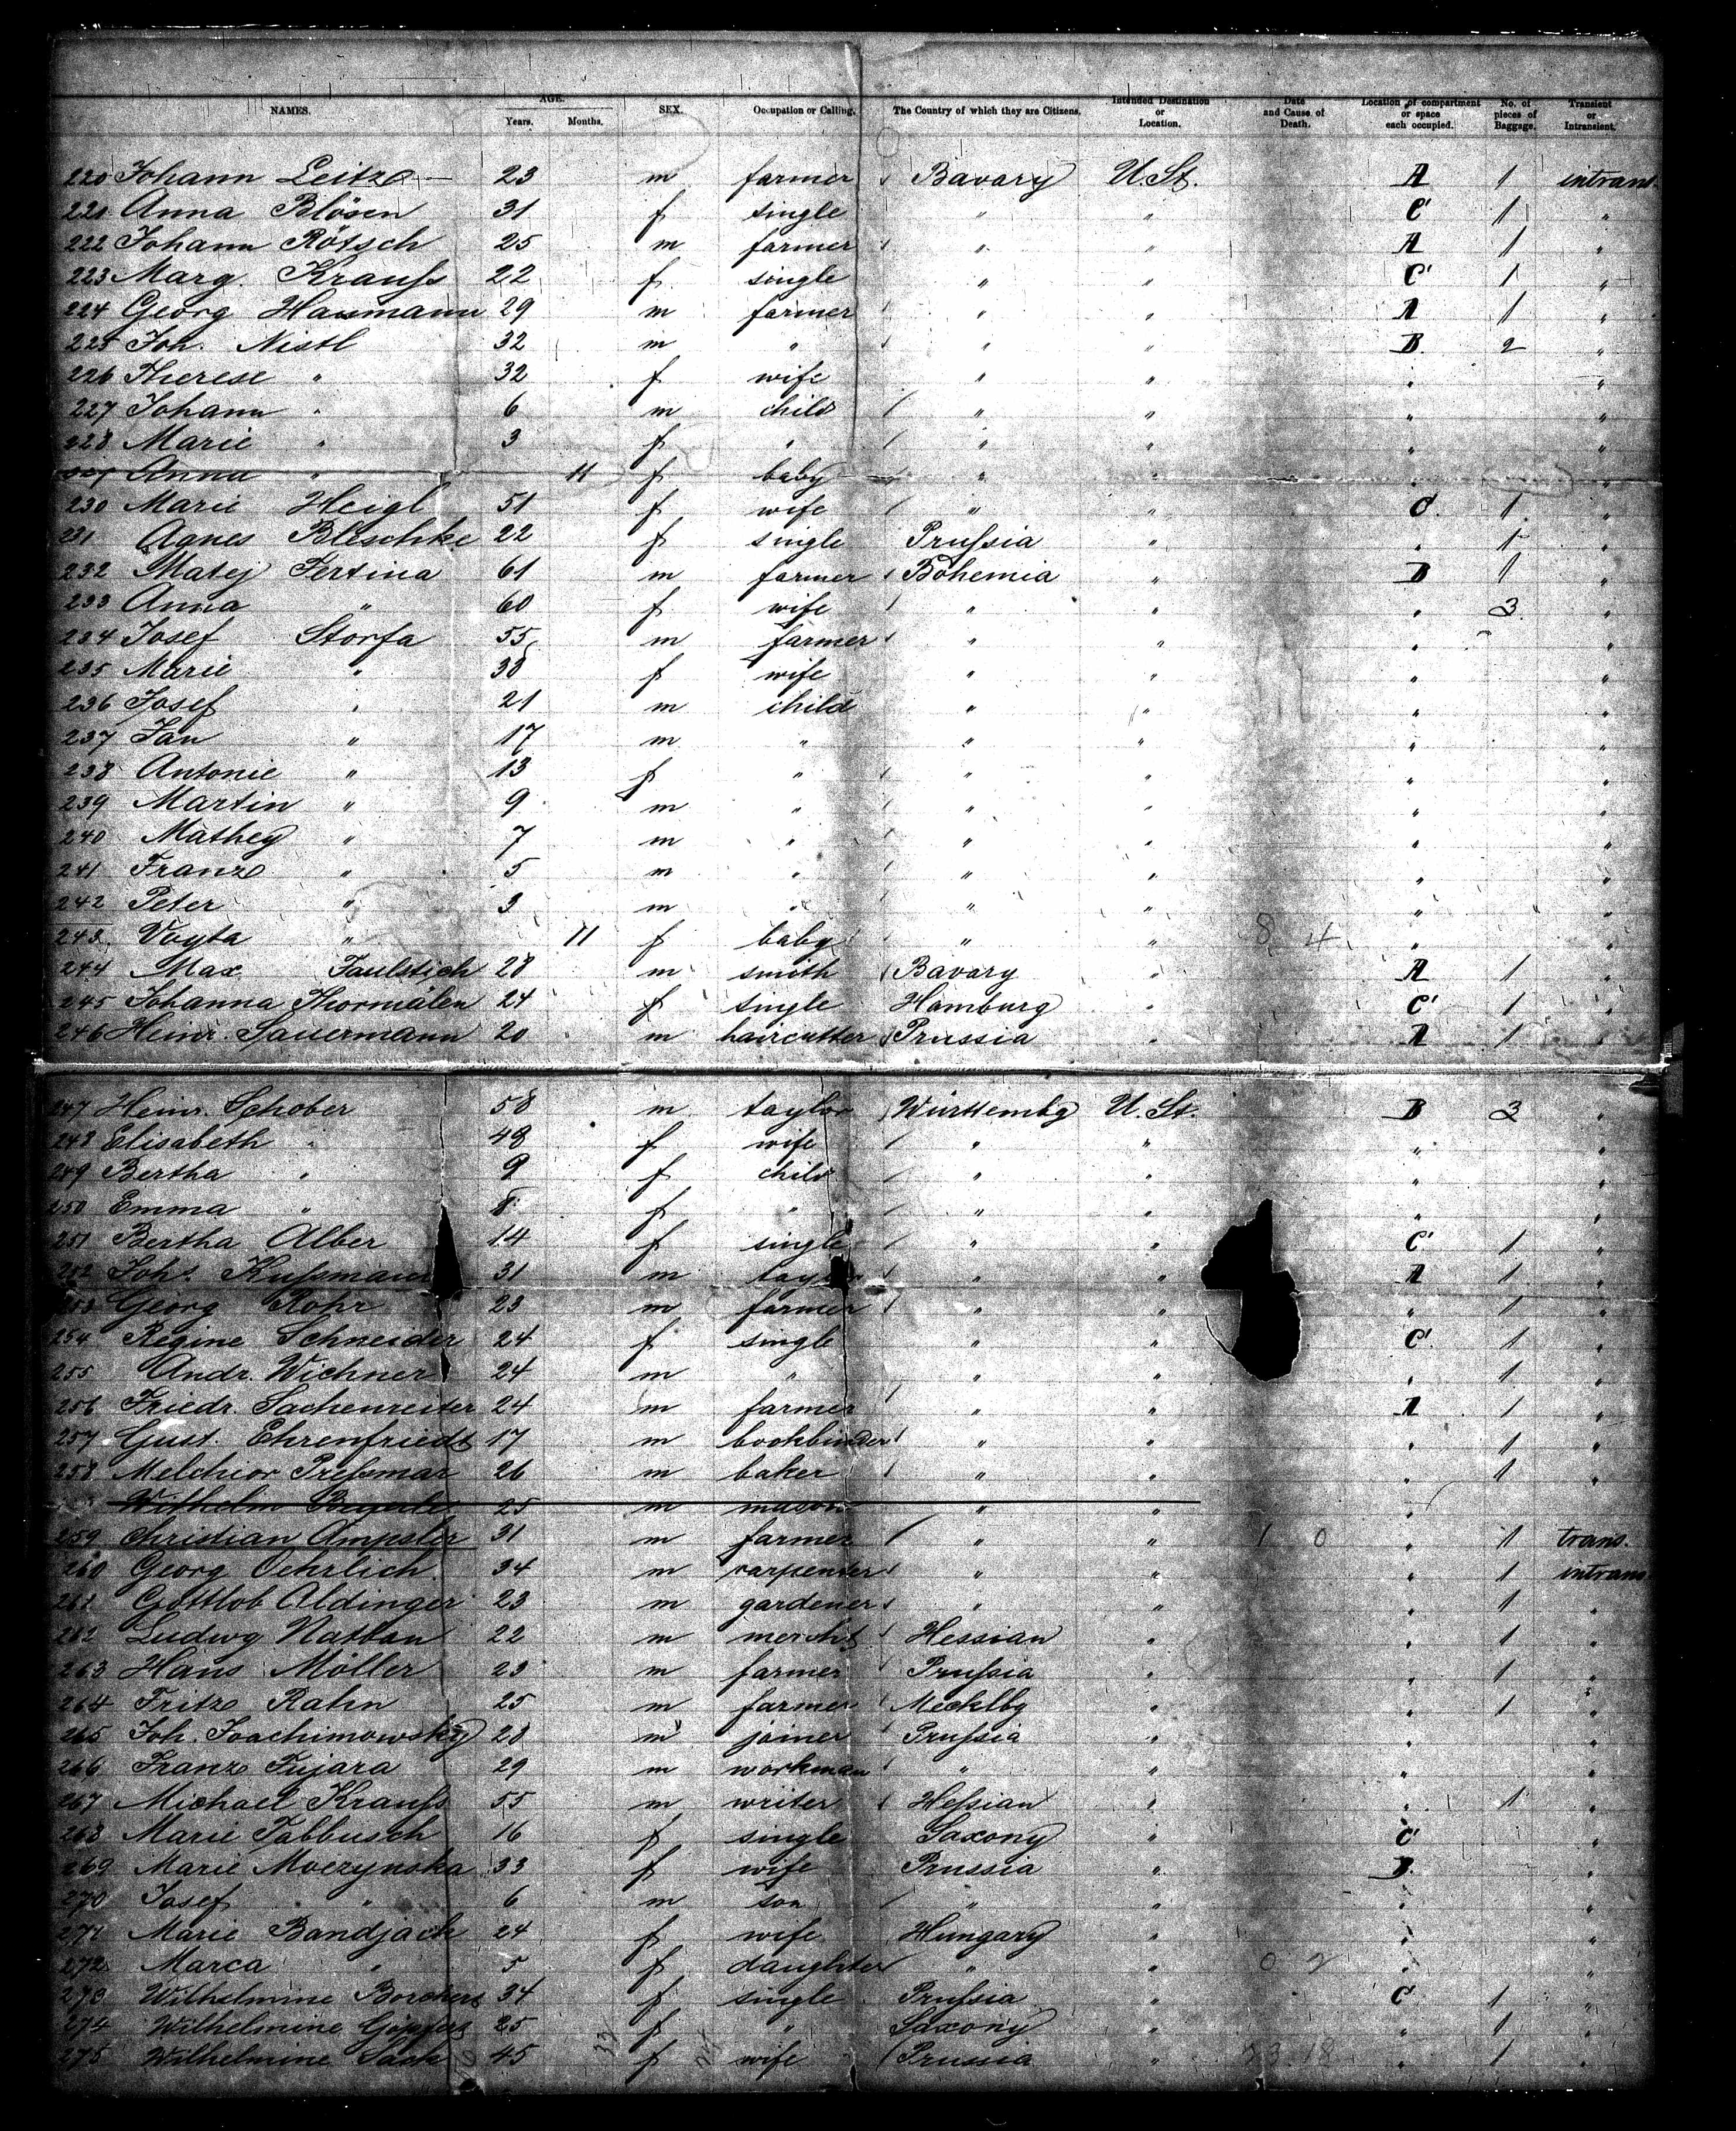 NAMES. AGE. Years. Months. SEX. Occupation or Calling. The Country of which they are Citizens. Intended Destination or Location. Date and Cause of Death. Location of compartment or space each occupied. No. of pieces of Baggage. Transient or Intransient.
220 Johann Leitz 23 m farmer Bavary U.St. A 1 intrans.
221 Anna Blösen 31 f single " " C 1 "
222 Johann Rötsch 25 m farmer " " A 1 "
223 Marg. Krauſs 22 f single " " C 1 "
224 Georg Hammann 29 m farmer " " A 1 "
225 Joh. Nistl 32 m " " " B 2 "
226 Therese " 32 f wife " " " "
227 Johann " 6 m child " " " "
228 Marie " 3 f " " " " "
Anna " 11 f baby " " " "
230 Marie Heigl 51 f wife " " C. 1 "
231 Agnes Bleschke 22 f single Pruſsia " " 1 "
232 Matej Tertina 61 m farmer Bohemia " B 1 "
233 Anna " 60 f wife " " " 3 "
234 Josef Storfa 55 m farmer " " " "
235 Marie " 38 f wife " " " "
236 Josef " 21 m child " " " "
237 Jan " 17 m " " " " "
238 Antonie " 13 f " " " " "
239 Martin " 9 m " " " " "
240 Mathey " 7 m " " " " "
241 Franz " 5 m " " " " "
242 Peter " 3 m " " " " "
243 Voyta " 11 f baby " " 8 4 " "
244 Max Faulstich 28 m smith Bavary " A 1 "
245 Johanna Thormälen 24 f single Hamburg " C 1 "
246 Heinr. Sauermann 20 m haircutter Prussia " A 1 "
247 Heinr. Schober 58 m taylor Württembg U. St. B 3 "
248 Elisabeth " 48 f wife " " " "
249 Bertha " 9 f child " " " "
250 Emma " 8 f " " " " "
251 Bertha Alber 14 f single " " C 1 "
252 Johs. Kuſsmann 31 m taylor " " A 1 "
253 Georg Rohr 23 m farmer " " " 1 "
254 Regine Schneider 24 f single " " C 1 "
255 Andr. Wichner 24 m " " " " 1 "
256 Friedr. Sachenreiter 24 m farmer " " A 1 "
257 Gust. Ehrenfriedt 17 m bookbinder " " " 1 "
258 Melchior Preſsmar 26 m baker " " " 1 "
Wilhelm 25 m mason " " " "
259 Christian Ampsler 31 m farmer " " 1 0 " 1 trans.
260 Georg Oehrlich 34 m carpenter " " " 1 intrans.
261 Gottlob Aldinger 23 m gardener " " " 1 "
262 Ludwg Nathan 22 m mercht Hessian " " 1 "
263 Hans Möller 23 m farmer Pruſsia " " 1 "
264 Fritz Rahn 25 m farmer Mecklbg " " 1 "
265 Joh. Joachimowsky 28 m joiner Pruſsia " " "
266 Franz Fujara 29 m workman " " " "
267 Michael Krauſs 55 m writer Heſsian " " 1 "
268 Marie Tabbusch 16 f single Saxony " C "
269 Marie Moczynska 33 f wife Prussia " B "
270 Josef " 6 m son " " " "
271 Marie Bandjach 24 f wife Hungary " " "
272 Marca " 5 f daughter " " 0 2 " "
273 Wilhelmine Borchers 34 f single Pruſsia " C 1 "
274 Wilhelmine 25 f " Saxony " " 1 "
275 Wilhelmine Sack 45 f wife Prussia " " 1 "